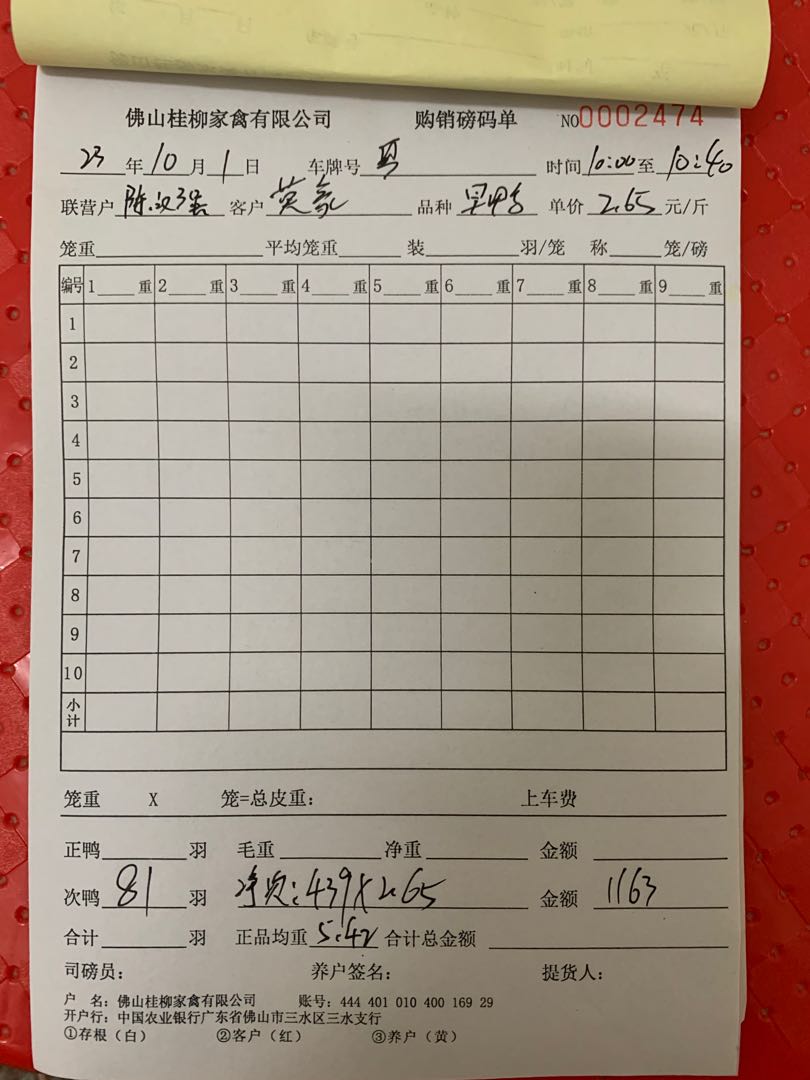 佛山桂柳家禽有限公司 购销磅码单 NO0002474
23年10月1日 车牌号 时间10:00至10:40
联营户 陈汉强 客户 英豪 品种 旱鸭 单价 2.65 元/斤
笼重 平均笼重 装 羽/笼 称 笼/磅
编号 1 重 2 重 3 重 4 重 5 重 6 重 7 重 8 重 9 重
1
2
3
4
5
6
7
8
9
10
小计
笼重 X 笼=总皮重: 上车费
正鸭 羽 毛重 净重 金额
次鸭 81 羽 净次:439X2.65 金额 1163
合计 羽 正品均重 5.42 合计总金额
司磅员: 养户签名: 提货人:
户 名: 佛山桂柳家禽有限公司 账号: 444 401 010 400 169 29
开户行: 中国农业银行广东省佛山市三水区三水支行
①存根(白) ②客户(红) ③养户(黄)